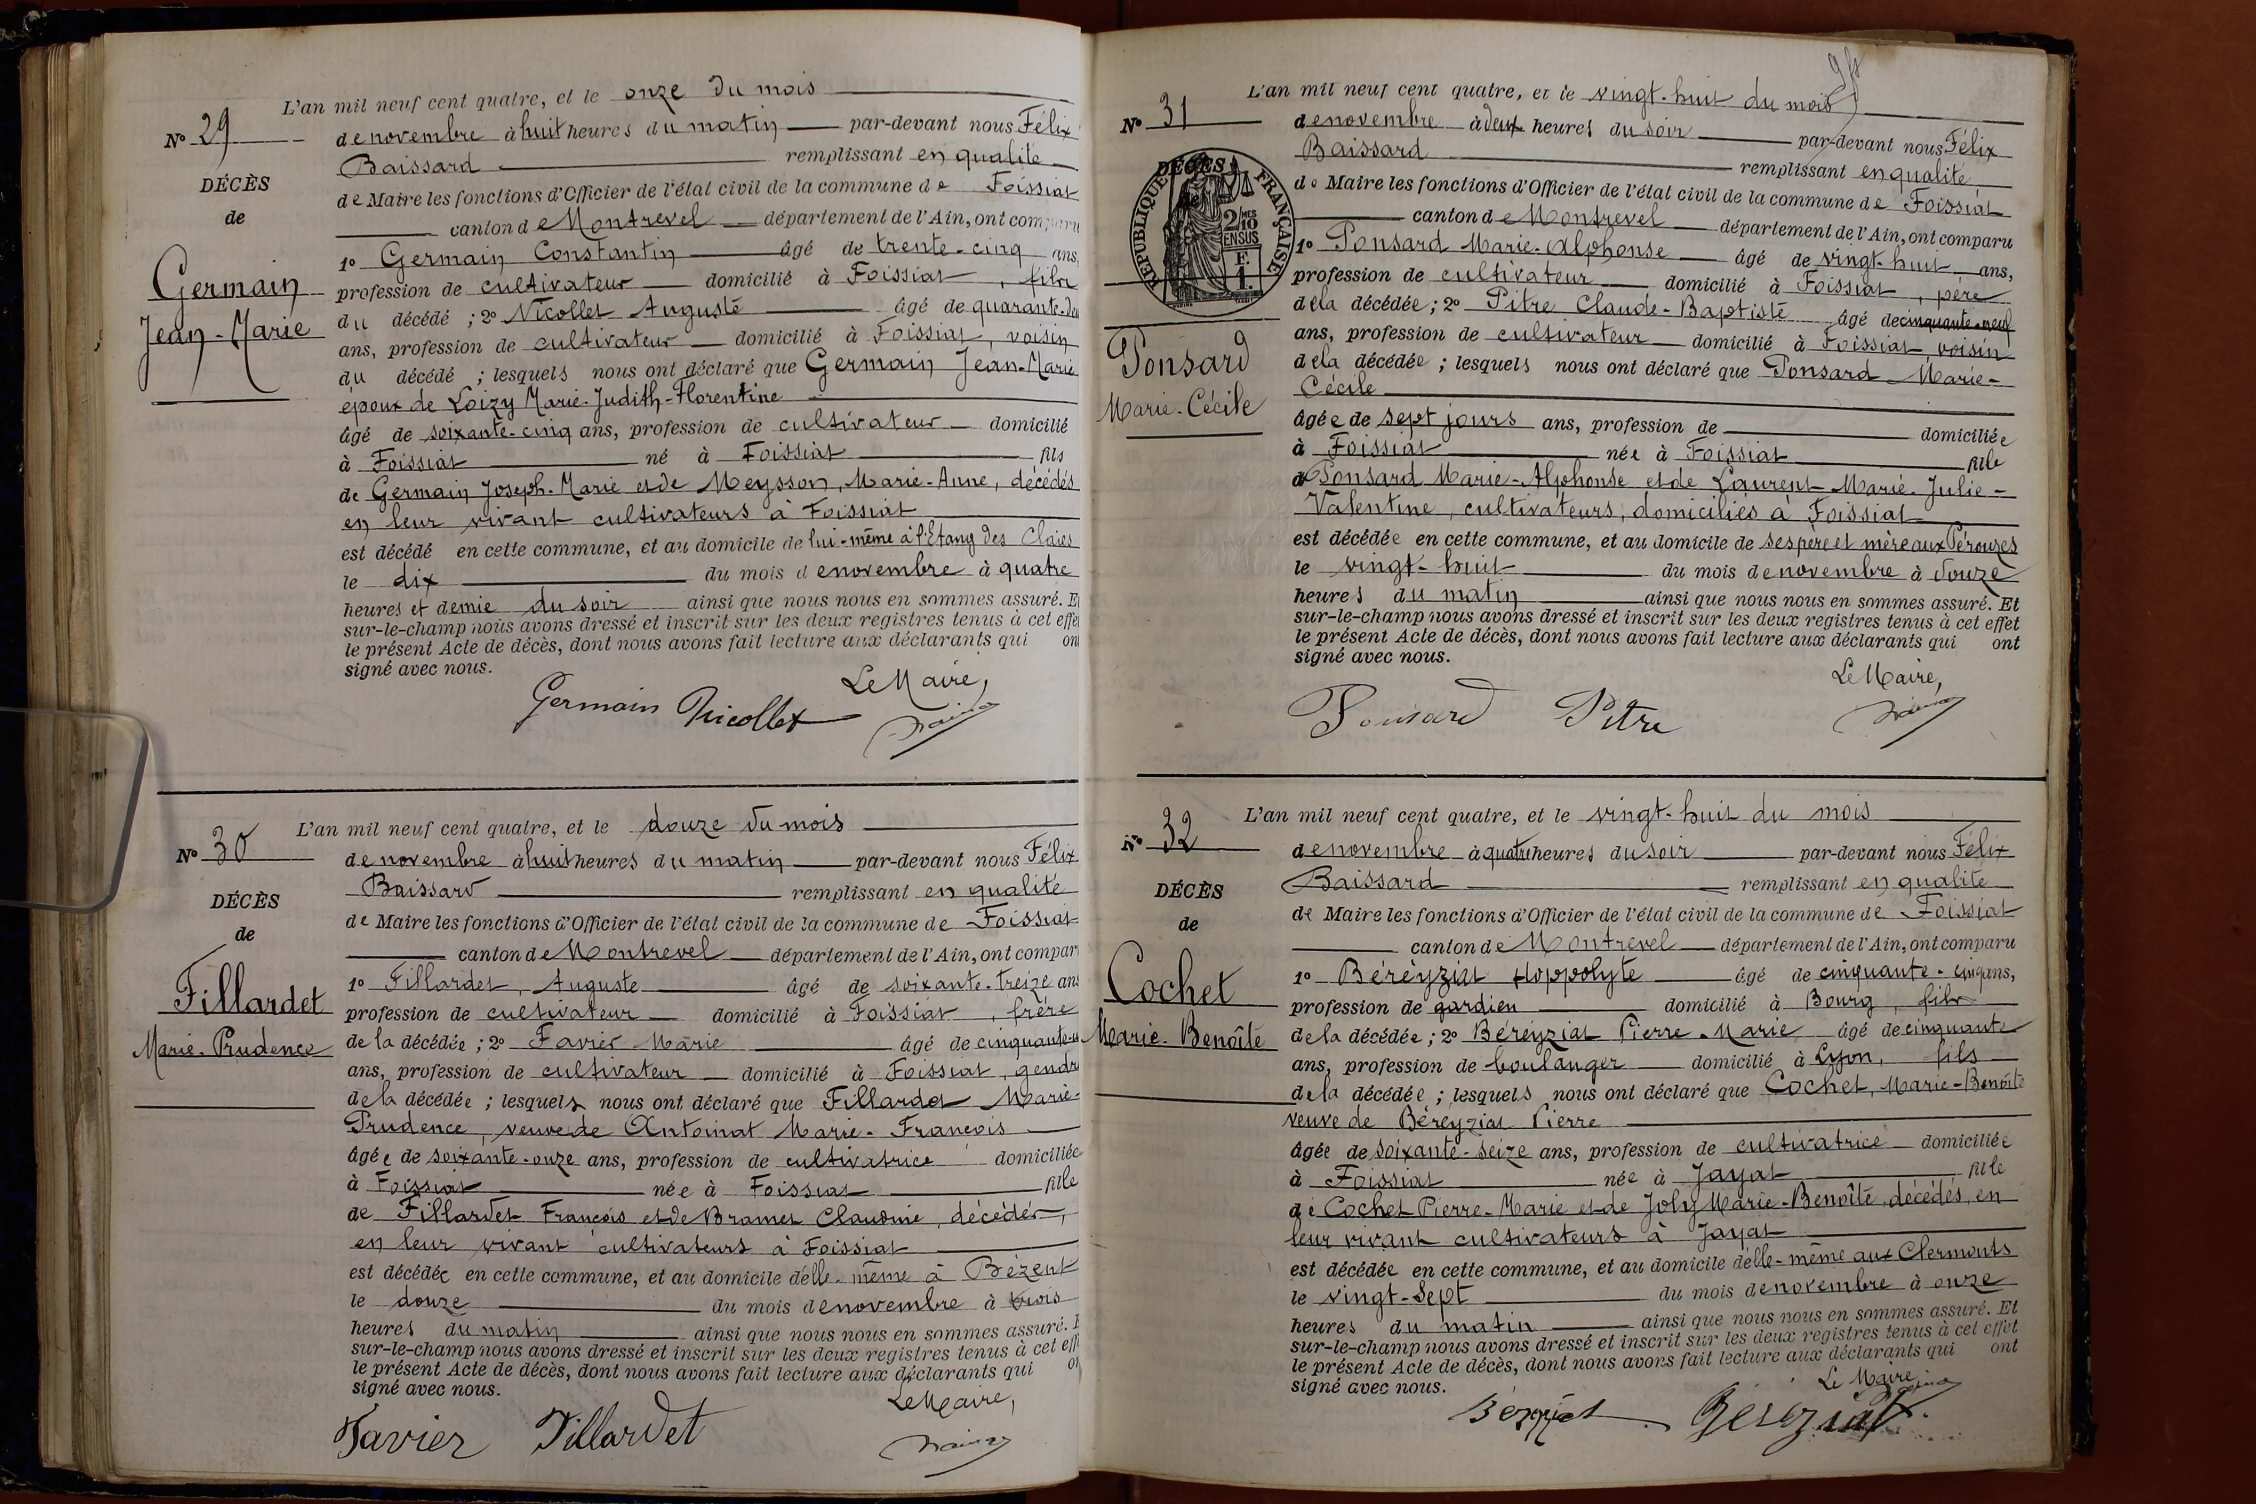 L'an mil neuf cent quatre, et le onze du mois
No 29
de novembre à huit heures du matin par-devant nous Félix
Baissard remplissant en qualité
DÉCÈS
de Maire les fonctions d'Officier de l'état civil de la commune de Foissiat
de
canton de Montrevel département de l'Ain, ont comparu
1o Germain Constantin âgé de trente-cinq ans,
Germain
profession de cultivateur domicilié à Foissiat, fils
Jean-Marie
du décédé ; 2o Nicollet Auguste âgé de quarante-deu
ans, profession de cultivateur domicilié à Foissiat, voisin
du décédé ; lesquels nous ont déclaré que Germain Jean-Marie
époux de Loizy Marie-Judith-Florentine
âgé de soixante-cinq ans, profession de cultivateur domicilié
à Foissiat né à Foissiat fils
de Germain Joseph-Marie et de Meysson, Marie-Anne, décédés
en leur vivant cultivateurs à Foissiat
est décédé en cette commune, et au domicile de lui-même à l'Etang des Claies
le dix du mois de novembre à quatre
heures et demie du soir ainsi que nous nous en sommes assuré. Et
sur-le-champ nous avons dressé et inscrit sur les deux registres tenus à cet effet
le présent Acte de décès, dont nous avons fait lecture aux déclarants qui ont
signé avec nous.
Le Maire,
Germain Nicollet
L'an mil neuf cent quatre, et le douze du mois
No 30
de novembre à huit heures du matin par-devant nous Félix
Baissard remplissant en qualité
DÉCÈS
de Maire les fonctions d'Officier de l'état civil de la commune de Foissiat
de
canton de Montrevel département de l'Ain, ont compar
1o Fillardet, Auguste âgé de soixante-treize ans
Fillardet
profession de cultivateur domicilié à Foissiat, frère
Marie-Prudence
de la décédée ; 2o Favier Marie âgé de
ans, profession de cultivateur domicilié à Foissiat, gendre
de la décédée ; lesquels nous ont déclaré que Fillardet Marie-
Prudence, veuve de Antoinat Marie-François
âgée de soixante-onze ans, profession de cultivatrice domiciliée
à Foissiat née à Foissiat fille
de Fillardet François et de Bramet Claudine, décédés,
en leur vivant cultivateurs à Foissiat
est décédée en cette commune, et au domicile d'elle-même à Bézent
le douze du mois de novembre à trois
heures du matin ainsi que nous nous en sommes assuré. E
sur-le-champ nous avons dressé et inscrit sur les deux registres tenus à cet eff
le présent Acte de décès, dont nous avons fait lecture aux déclarants qui on
signé avec nous.
Le Maire,
Favier Fillardet
L'an mil neuf cent quatre, et le vingt-huit du mois
No 31
de novembre à deux heures du soir par-devant nous Félix
Baissard remplissant en qualité
DÉCÈS
RÉPUBLIQUE FRANÇAISE
2/10 MES
EN SUS
F.
1.
de Maire les fonctions d'Officier de l'état civil de la commune de Foissiat
canton de Montrevel département de l'Ain, ont comparu
1o Ponsard Marie-Alphonse âgé de vingt-huit ans,
profession de cultivateur domicilié à Foissiat, père
de la décédée ; 2o Pitre Claude-Baptiste âgé de cinquante-neuf
ans, profession de cultivateur domicilié à Foissiat, voisin
Ponsard
de la décédée ; lesquels nous ont déclaré que Ponsard Marie-
Cécile
Marie-Cécile
âgée de sept jours ans, profession de domiciliée
à Foissiat née à Foissiat fille
de Ponsard Marie-Alphonse et de Laurent Marie-Julie-
Valentine, cultivateurs, domiciliés à Foissiat
est décédée en cette commune, et au domicile de ses père et mère aux Pérouzes
le vingt-huit du mois de novembre à douze
heures du matin ainsi que nous nous en sommes assuré. Et
sur-le-champ nous avons dressé et inscrit sur les deux registres tenus à cet effet
le présent Acte de décès, dont nous avons fait lecture aux déclarants qui ont
signé avec nous.
Le Maire,
Ponsard Pitre
L'an mil neuf cent quatre, et le vingt-huit du mois
No 32
de novembre à quatre heures du soir par-devant nous Félix
Baissard remplissant en qualité
DÉCÈS
de Maire les fonctions d'Officier de l'état civil de la commune de Foissiat
de
canton de Montrevel département de l'Ain, ont comparu
1o Béréyziat Hoppolyte âgé de cinquante-cinq ans,
Cochet
profession de gardien domicilié à Bourg, fils
Marie-Benoîte
de la décédée ; 2o Béréyziat Pierre-Marie âgé de cinquante
ans, profession de boulanger domicilié à Lyon, fils
de la décédée ; lesquels nous ont déclaré que Cochet, Marie-Benoîte
veuve de Béréyziat Pierre
âgée de soixante-seize ans, profession de cultivatrice domiciliée
à Foissiat née à Jayat fille
de Cochet Pierre-Marie et de Joly Marie-Benoîte, décédés, en
leur vivant cultivateurs à Jayat
est décédée en cette commune, et au domicile d'elle-même aux Clermonts
le vingt-sept du mois de novembre à onze
heures du matin ainsi que nous nous en sommes assuré. Et
sur-le-champ nous avons dressé et inscrit sur les deux registres tenus à cet effet
le présent Acte de décès, dont nous avons fait lecture aux déclarants qui ont
signé avec nous.
Le Maire
Béréziat